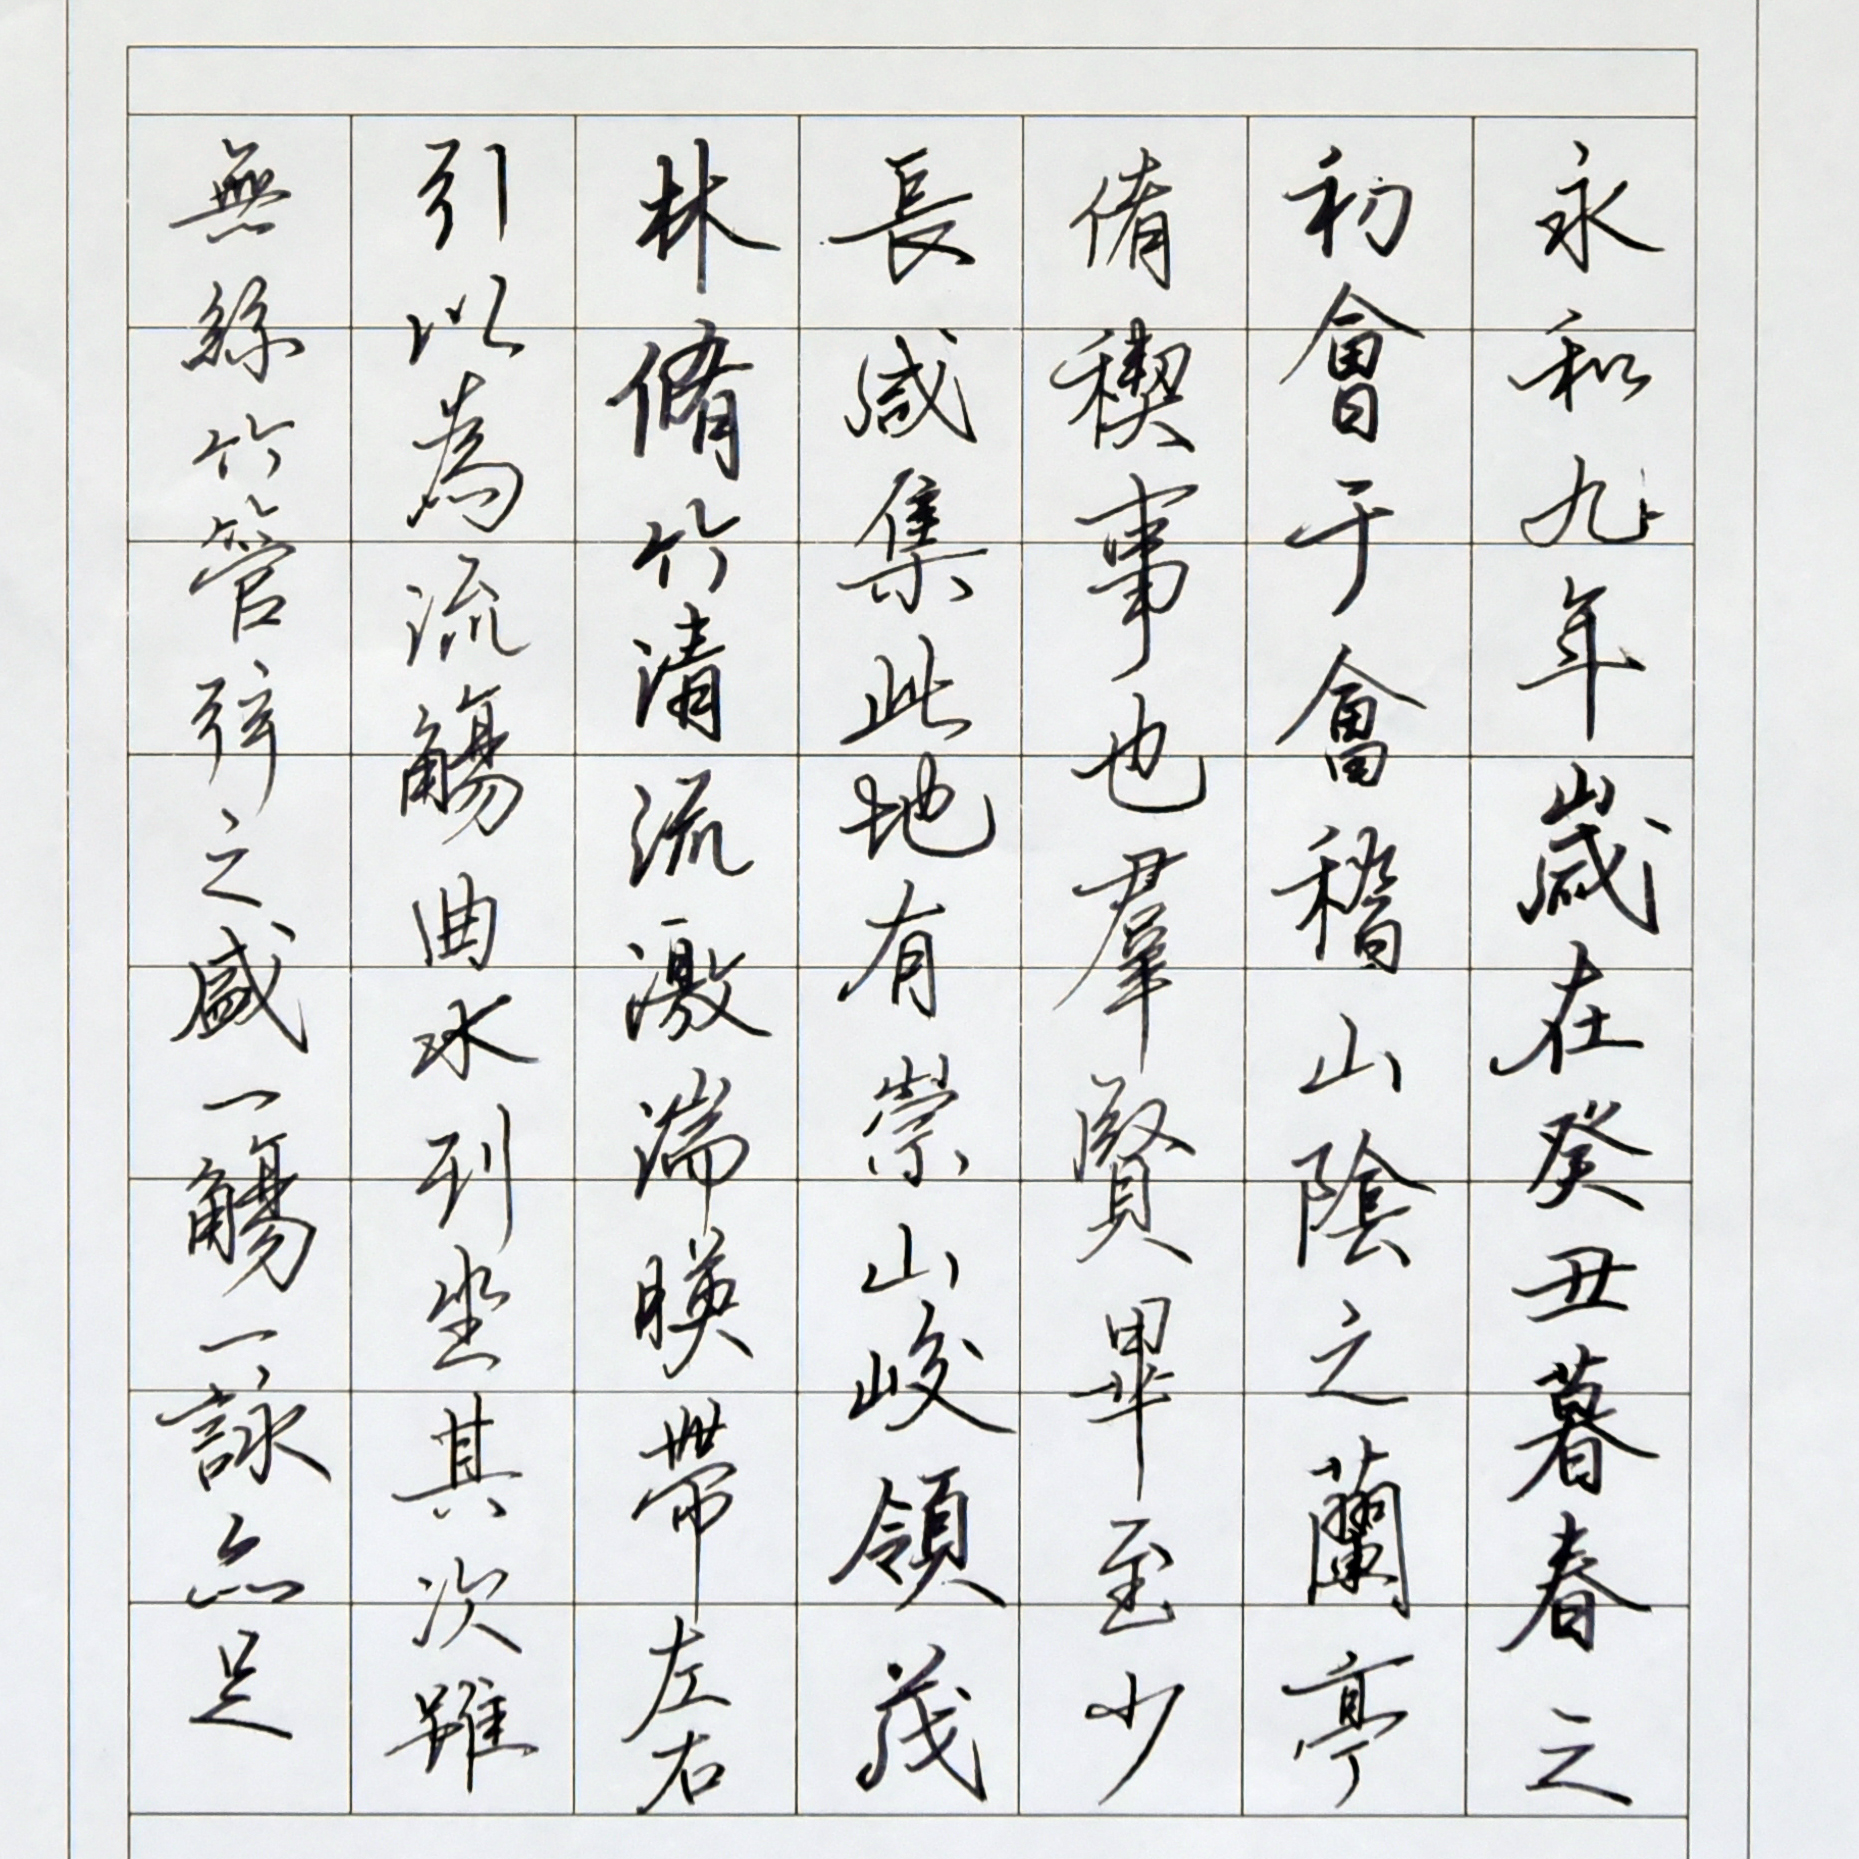 永和九年歲在癸丑暮春之
初會于會稽山陰之蘭亭
脩稧事也羣賢畢至少
長咸集此地有崇山峻領茂
林脩竹清流激湍暎帶左右
引以為流觴曲水列坐其次雖
無絲竹管弦之盛一觴一詠亦足